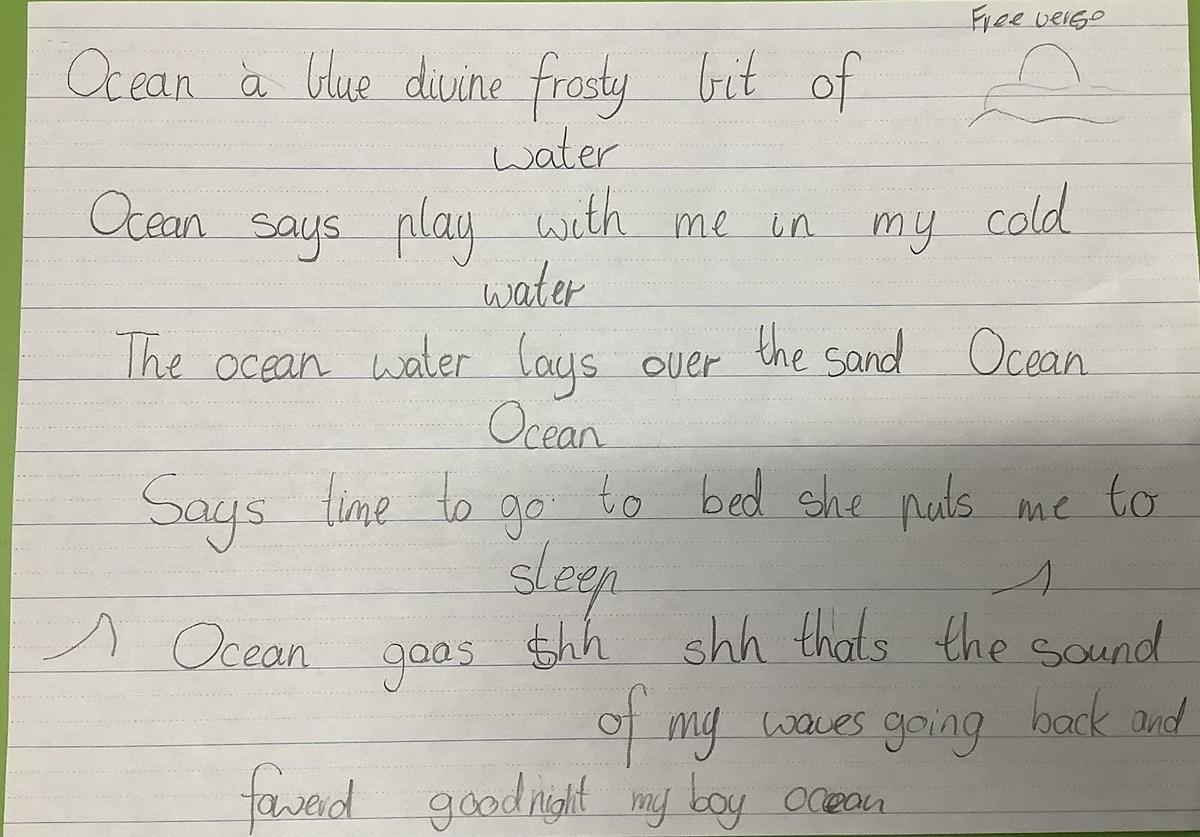 Free verse
Ocean a blue divine frosty bit of
water
Ocean says play with me in my cold
water
The ocean water lays over the sand Ocean
Ocean
Says time to go to bed she puts me to
sleep
Ocean goas shh shh thats the sound
of my waves going back and
fowerd goodnight my boy ocean